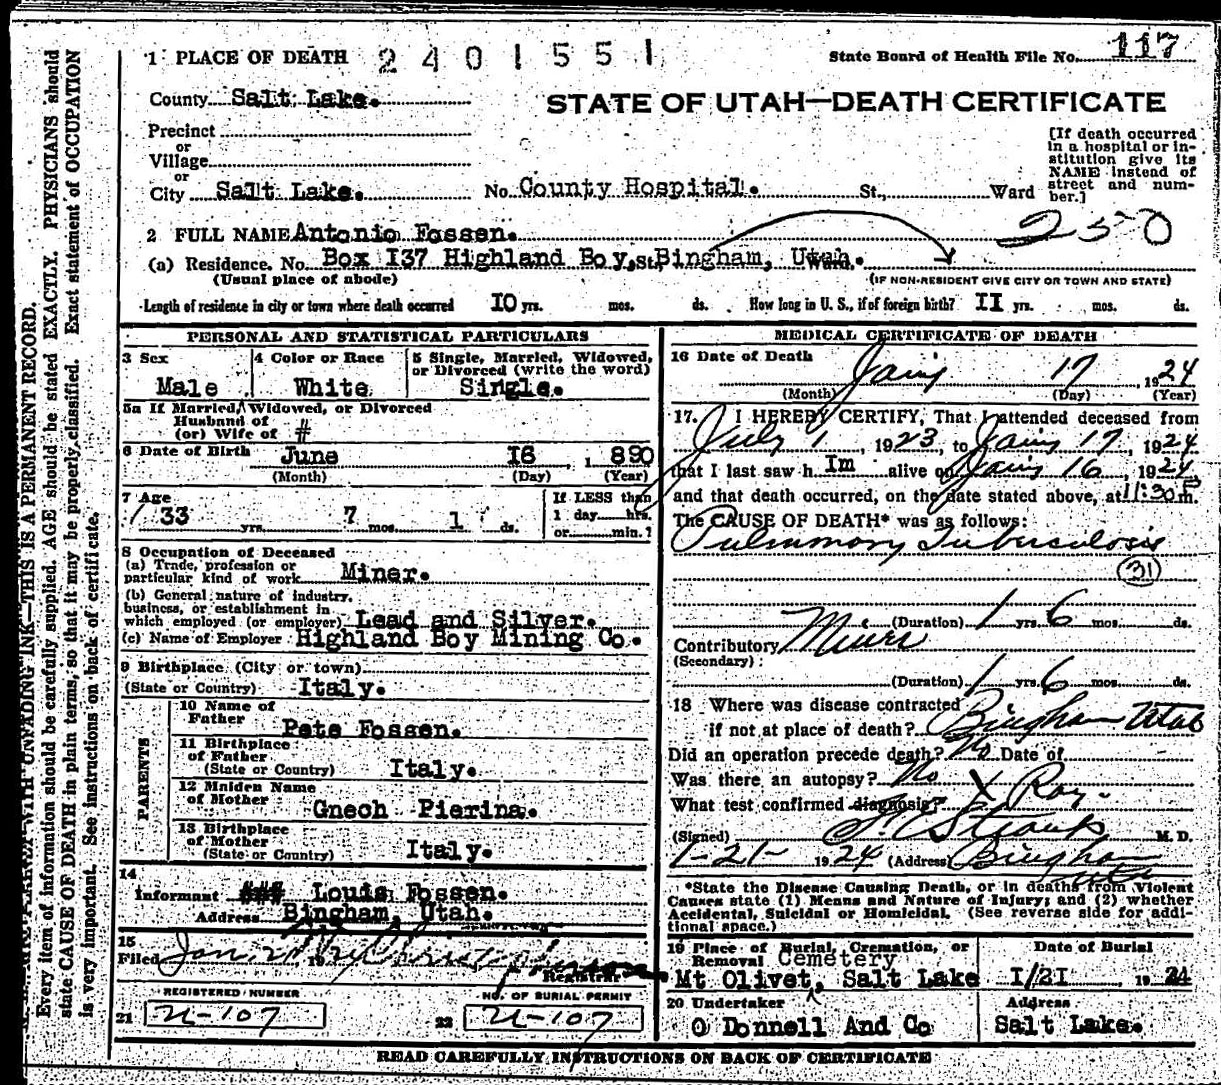 1 PLACE OF DEATH 2401551
State Board of Health File No. 117
County Salt Lake.
STATE OF UTAH—DEATH CERTIFICATE
Precinct
or
Village
or
City Salt Lake. No. County Hospital. St., Ward
[If death occurred
in a hospital or in-
stitution give its
NAME instead of
street and num-
ber.]
2 FULL NAME Antonio Fossen. 2550
(a) Residence. No. Box 137 Highland Boy, St., Bingham, Utah.
(Usual place of abode) (IF NON-RESIDENT GIVE CITY OR TOWN AND STATE)
Length of residence in city or town where death occurred 10 yrs. mos. ds. How long in U. S., if of foreign birth? 11 yrs. mos. ds.
PERSONAL AND STATISTICAL PARTICULARS
3 Sex Male
4 Color or Race White
5 Single, Married, Widowed,
or Divorced (write the word)
Single.
5a If Married, Widowed, or Divorced
Husband of
(or) Wife of #
6 Date of Birth June 16, 1890
(Month) (Day) (Year)
7 Age 33 yrs. 7 mos. 1 ds.
If LESS than
1 day hrs.
or min.?
8 Occupation of Deceased
(a) Trade, profession or
particular kind of work Miner.
(b) General nature of industry,
business, or establishment in
which employed (or employer) Lead and Silver.
(c) Name of Employer Highland Boy Mining Co.
9 Birthplace (City or town)
(State or Country) Italy.
PARENTS
10 Name of
Father Pete Fossen.
11 Birthplace
of Father
(State or Country) Italy.
12 Maiden Name
of Mother Gnech Pierina.
13 Birthplace
of Mother
(State or Country) Italy.
14
Informant ### Louis Fossen.
Address Bingham, Utah.
15
Filed Jan 21 19
Registrar
REGISTERED NUMBER
21 U-107
NO. OF BURIAL PERMIT
22 U-107
MEDICAL CERTIFICATE OF DEATH
16 Date of Death Jany 17, 1924
(Month) (Day) (Year)
17. I HEREBY CERTIFY, That I attended deceased from
July 1, 1923, to Jany 17, 1924
that I last saw h Im alive on Jany 16, 1924
and that death occurred, on the date stated above, at 11:30 P m.
The CAUSE OF DEATH* was as follows:
Pulmonary Tuberculosis
(31)
(Duration) 1 yrs. 6 mos. ds.
Contributory Miner
(Secondary)
(Duration) 1 yrs. 6 mos. ds.
18 Where was disease contracted
if not at place of death? Bingham Utah
Did an operation precede death? No Date of
Was there an autopsy? No
What test confirmed diagnosis? X Ray.
(Signed) Straup M. D.
1-21- 1924 (Address) Bingham
Utah
*State the Disease Causing Death, or in deaths from Violent
Causes state (1) Means and Nature of Injury; and (2) whether
Accidental, Suicidal or Homicidal. (See reverse side for addi-
tional space.)
19 Place of Burial, Cremation, or
Removal Cemetery
Mt Olivet, Salt Lake
Date of Burial
1/21, 1924
20 Undertaker
O Donnell And Co
Address
Salt Lake.
READ CAREFULLY INSTRUCTIONS ON BACK OF CERTIFICATE
WITH UNFADING INK—THIS IS A PERMANENT RECORD.
Every item of information should be carefully supplied. AGE should be stated EXACTLY. PHYSICIANS should
state CAUSE OF DEATH in plain terms, so that it may be properly classified. Exact statement of OCCUPATION
is very important. See instructions on back of certificate.